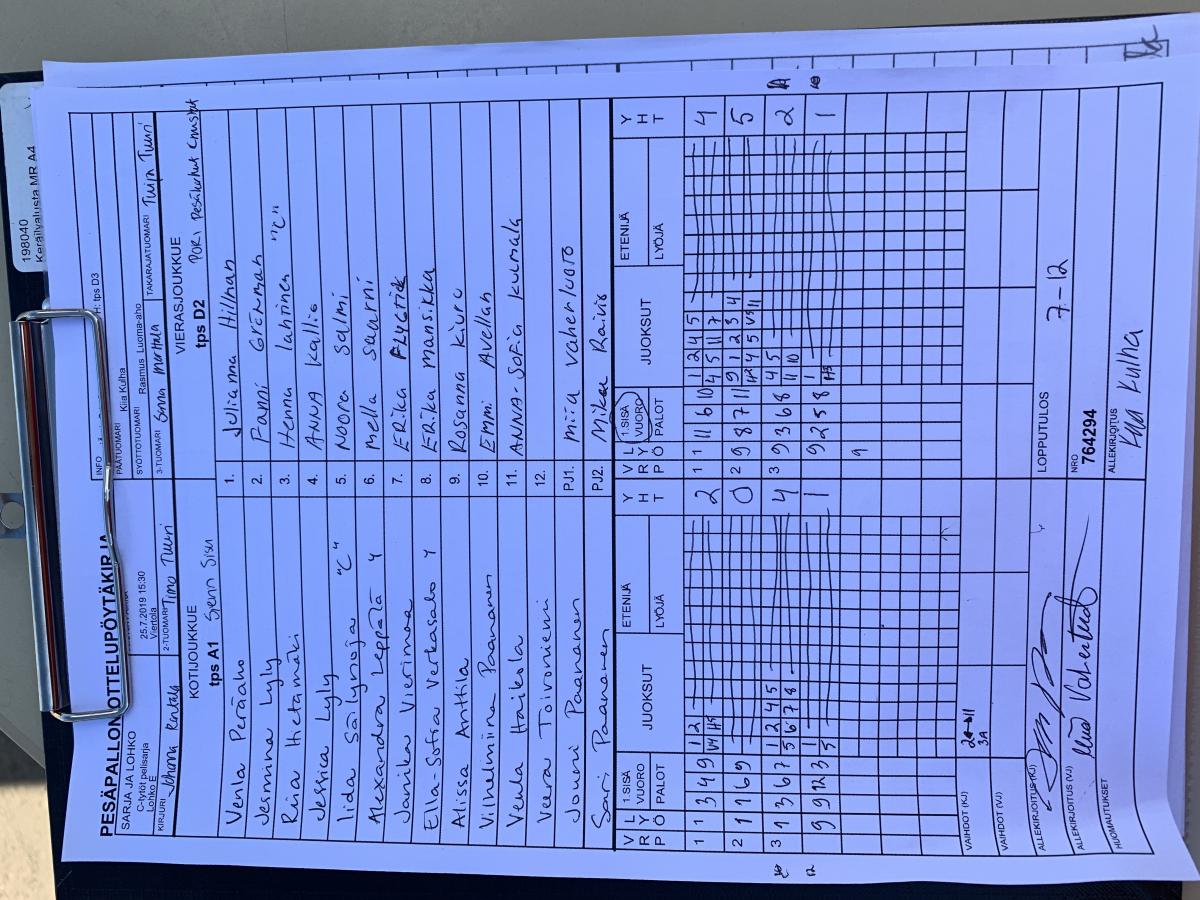 198040
Keräilyalusta MR A4
PESÄPALLON OTTELUPÖYTÄKIRJA
INFO
H: tps D3
SARJA JA LOHKO
C-tytöt pelisarja
Lohko E
25.7.2019 15:30
Viertola
PÄÄTUOMARI
Kiia Kulha
SYÖTTÖTUOMARI
Rasmus Luoma-aho
KIRJURI
Johanna Rantala
2-TUOMARI
Timo Tuuri
3-TUOMARI
Sanna Marttala
TAKARAJATUOMARI
Tuija Tuuri
KOTIJOUKKUE
tps A1
Sjenn Sisu
VIERASJOUKKUE
tps D2
PORI Pesäkarhut
Venla Peräaho
1. Julianna Hillman
Jasmina Lyly
2. Panni GRÉNMAN
Riia Hietamäki
3. Henna Lahtinen "C"
Jessica Lyly
4. ANNA Kallio
Iida Säilynoja "C"
5. NOORA Salmi
Alexandra Leppälä Y
6. Mella Saarni
Janika Vierimaa
7. ERIKA FLYCTICK
Ella-Sofia Verkasalo Y
8. ERIKA Mansikka
Alissa Anttila
9. Rosanna Kiuru
Vilhelmiina Paananen
10. EMMI Avellan
Venla Haikola
11. ANNA-SOFIA Kuimala
Veera Toivoniemi
12.
Jouni Paananen
PJ1. Miia Vaherluoto
Sari Paananen
PJ2. Mika Raivio
V R P
L Y Ö
1.SISÄ VUORO
PALOT
JUOKSUT
ETENIJÄ
LYÖJÄ
Y H T
V R P
L Y Ö
1.SISÄ VUORO
PALOT
JUOKSUT
ETENIJÄ
LYÖJÄ
Y H T
1 1 3 4 9 1 2
2
1 1 11 6 10 1 2 4 5
4 5 11 7
4
2 1 1 6 9
0
2 9 8 7 11 9 1 2 3 4
5
3 1 3 6 7 1 2 4 5
5 6 7 8
4
3 9 3 6 8 4 5
11 10
2
9 9 12 3 1
5
1
9 2 5 8 1
1
9
VAIHDOT (KJ)
3A
VAIHDOT (VJ)
ALLEKIRJOITUS (KJ)
LOPPUTULOS
7-12
ALLEKIRJOITUS (VJ)
Miia Vaherluoto
NRO
764294
HUOMAUTUKSET
ALLEKIRJOITUS
Kiia Kulha